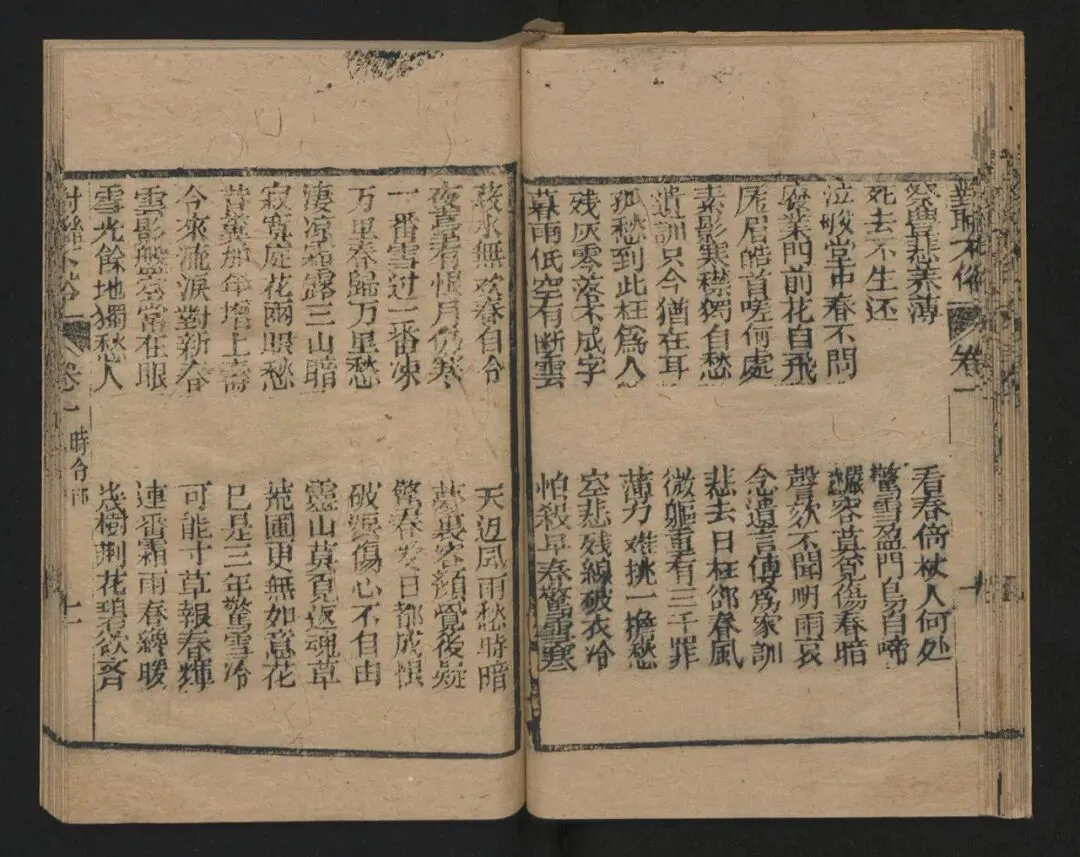 對聯不俗 卷一 十
祭豊悲养薄
看春倚杖人何处
死去不生还
驚雪盈門鳥自啼
泣 堂中春不問
容莫覔傷春暗
廢業門前花自飛
聲欬不聞明雨哀
厖眉皓首嗟何處
念遺言傳爲家訓
素影寒襟獨自愁
悲去日枉郤春風
遺訓只今猶在耳
微軀重有三千罪
孤愁到此枉爲人
薄力难挑一擔愁
残灰零落不成字
空悲残線破衣冷
暮雨低空有断雲
怕殺早春驚雪寒
菽水無欢春自合
天边风雨愁時暗
夜臺看恨月仍寒
夢裏容顔覺後疑
一番雪过一番凍
驚春爱日都成恨
万里春歸万里愁
破淚傷心不自由
凄凉霜露三山暗
靈山莫覔返魂草
寂寞庭花兩眼愁
圃更無如意花
昔冀那年增上壽
已是三年驚雪冷
今來流淚對新春
可能寸草報春輝
雲影盤空常在眼
連番霜雨春纔暖
雪光餘地獨愁人
幾樹荆花碧欲齐
對聯不俗 卷一 時令部 十一